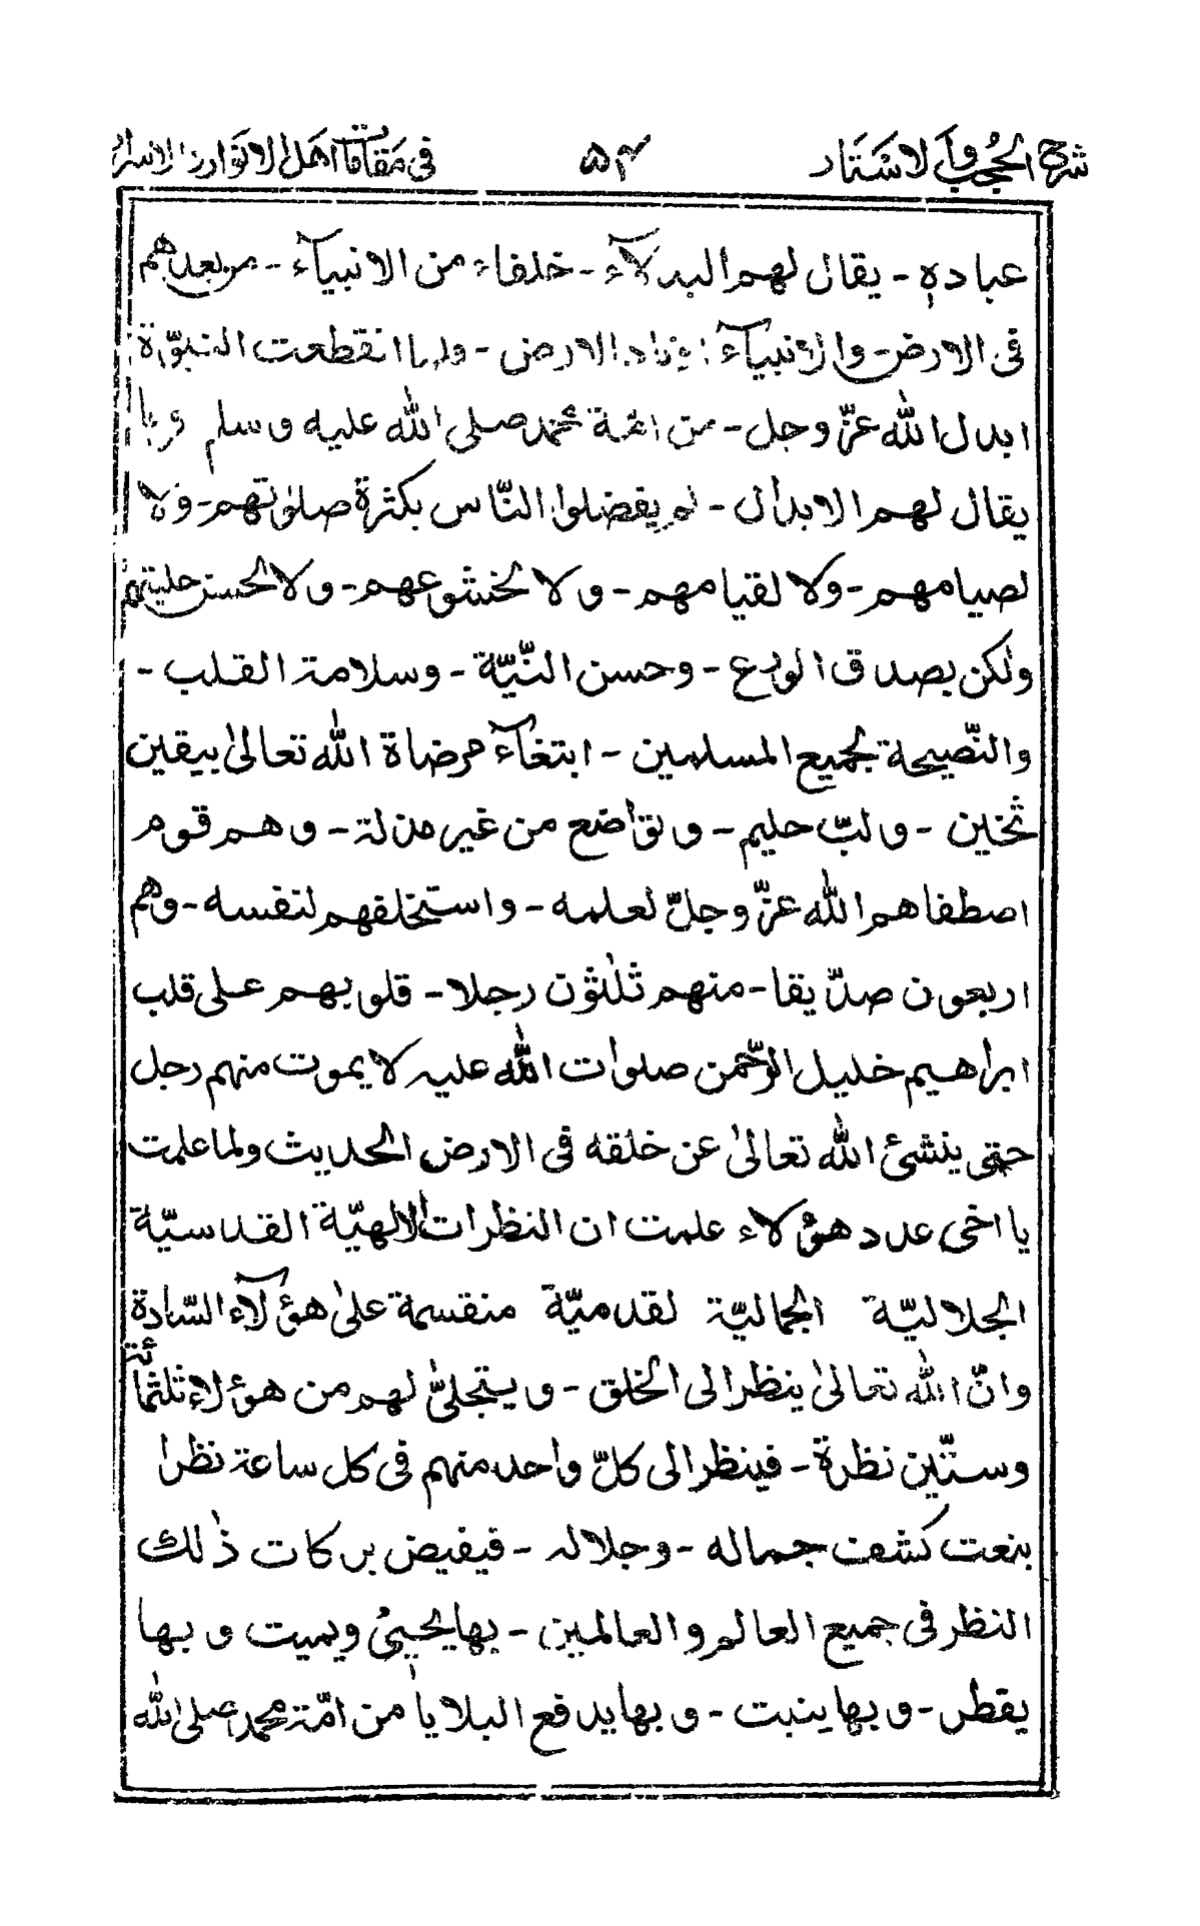 شرح الحجب والاستار ۵۴ فی مقامات اهل الانوار والاسرار
عباده - یقال لهم البدلآء - خلفاء من الانبیآء - من بعدهم
فی الارض - والانبیآء اوتاد الارض - ولما انقطعت النبوّة
ابدل الله عزّ وجل - من امّة محمّد صلی الله علیه وسلم
یقال لهم الابدال - لم یفضلوا النّاس بکثرة صلوٰتهم - ولا
لصیامهم - ولا لقیامهم - ولا لخشوعهم - ولا لحسن حلیتهم
ولٰکن بصدق الورع - وحسن النّیّة - وسلامة القلب -
والنّصیحة لجمیع المسلمین - ابتغآء مرضاة الله تعالیٰ بیقین
ثخین - ولبّ حلیم - وتواضع من غیر مذلة - وهم قوم
اصطفاهم الله عزّ وجلّ لعلمه - واستخلفهم لنفسه - وهم
اربعون صدّیقا - منهم ثلٰثون رجلا - قلوبهم علی قلب
ابراهیم خلیل الرّحمن صلوات الله علیه لا یموت منهم رجل
حتی ینشئ الله تعالیٰ عن خلقه فی الارض الحدیث ولما علمت
یا اخی عدد هؤلاء علمت ان النظرات الالهیّة القدسیّة
الجلالیّة الجمالیّة لقدمیّة منقسمة علیٰ هؤلآء السّادة
وانّ الله تعالیٰ ینظر الی الخلق - ویتجلیّٰ لهم من هؤلاء ثلثمائة
وستّین نظرة - فینظر الی کلّ واحد منهم فی کل ساعة نظرا
بنعت کشف جماله - وجلاله - فیفیض برکات ذٰلك
النظر فی جمیع العالم والعالمین - بها یحییٰ ویمیت وبها
یقطر - وبها ینبت - وبها یدفع البلایا من امّة محمد صلی الله